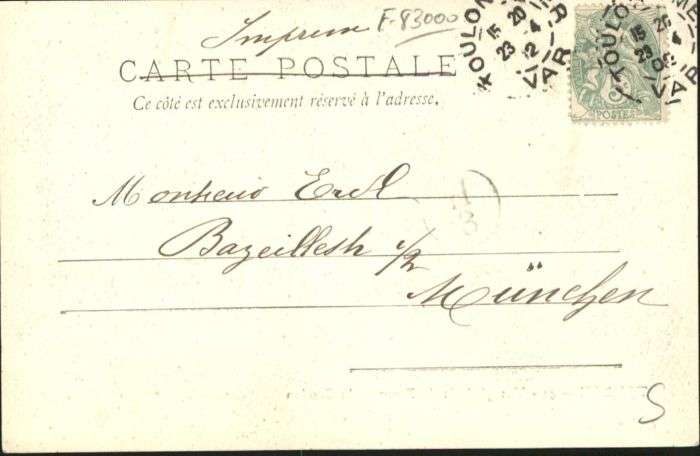 Imprimé F-83000
CARTE POSTALE
Ce côté est exclusivement réservé à l'adresse.
TOULON
15
23
VAR
TOULON
15
23
VAR
POSTES
Monsieur Erdl
Bazeillesstr 1/2
München
S